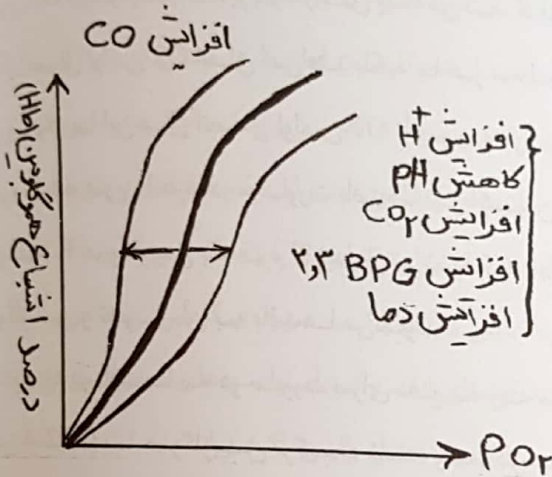 افزایش CO
درصد اشباع هموگلوبین (Hb)
افزایش H⁺
کاهش pH
افزایش CO₂
افزایش ۲٫۳ BPG
افزایش دما
PO₂